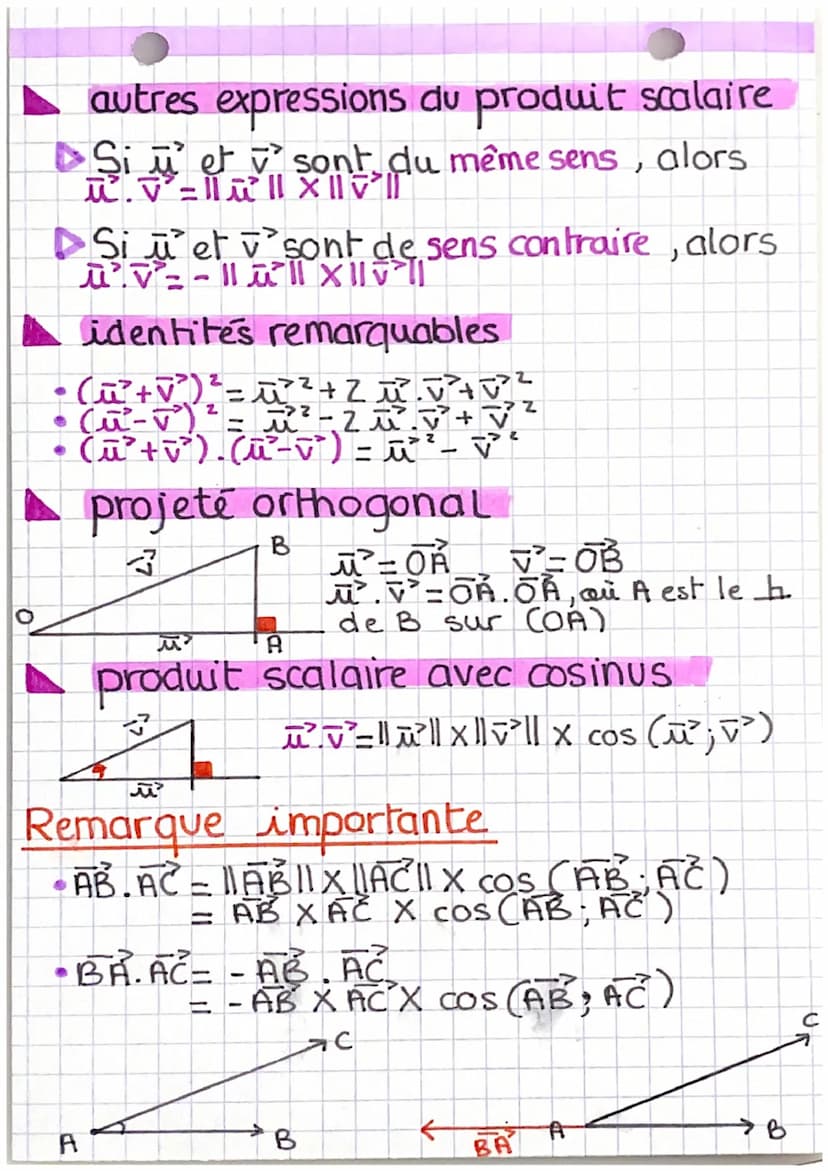 autres expressions du produit scalaire
Si u⃗ et v⃗ sont du même sens, alors
u⃗.v⃗ = ||u⃗|| × ||v⃗||
Si u⃗ et v⃗ sont de sens contraire, alors
u⃗.v⃗ = - ||u⃗|| × ||v⃗||
identités remarquables
• (u⃗+v⃗)² = u⃗² + 2 u⃗.v⃗ + v⃗²
• (u⃗-v⃗)² = u⃗² - 2 u⃗.v⃗ + v⃗²
• (u⃗+v⃗).(u⃗-v⃗) = u⃗² - v⃗²
projeté orthogonal
v⃗
B
O
u⃗
A
u⃗ = OA⃗ v⃗ = OB⃗
u⃗.v⃗ = OA⃗.OA⃗, où A est le h
de B sur (OA)
produit scalaire avec cosinus
v⃗
u⃗
u⃗.v⃗ = ||u⃗|| × ||v⃗|| × cos (u⃗;v⃗)
Remarque importante
• AB⃗.AC⃗ = ||AB⃗|| × ||AC⃗|| × cos (AB⃗; AC⃗)
= AB⃗ × AC⃗ × cos (AB⃗; AC⃗)
• BA⃗.AC⃗ = - AB⃗.AC⃗
= - AB⃗ × AC⃗ × cos (AB⃗; AC⃗)
C
A
B
C
BA⃗
A
B